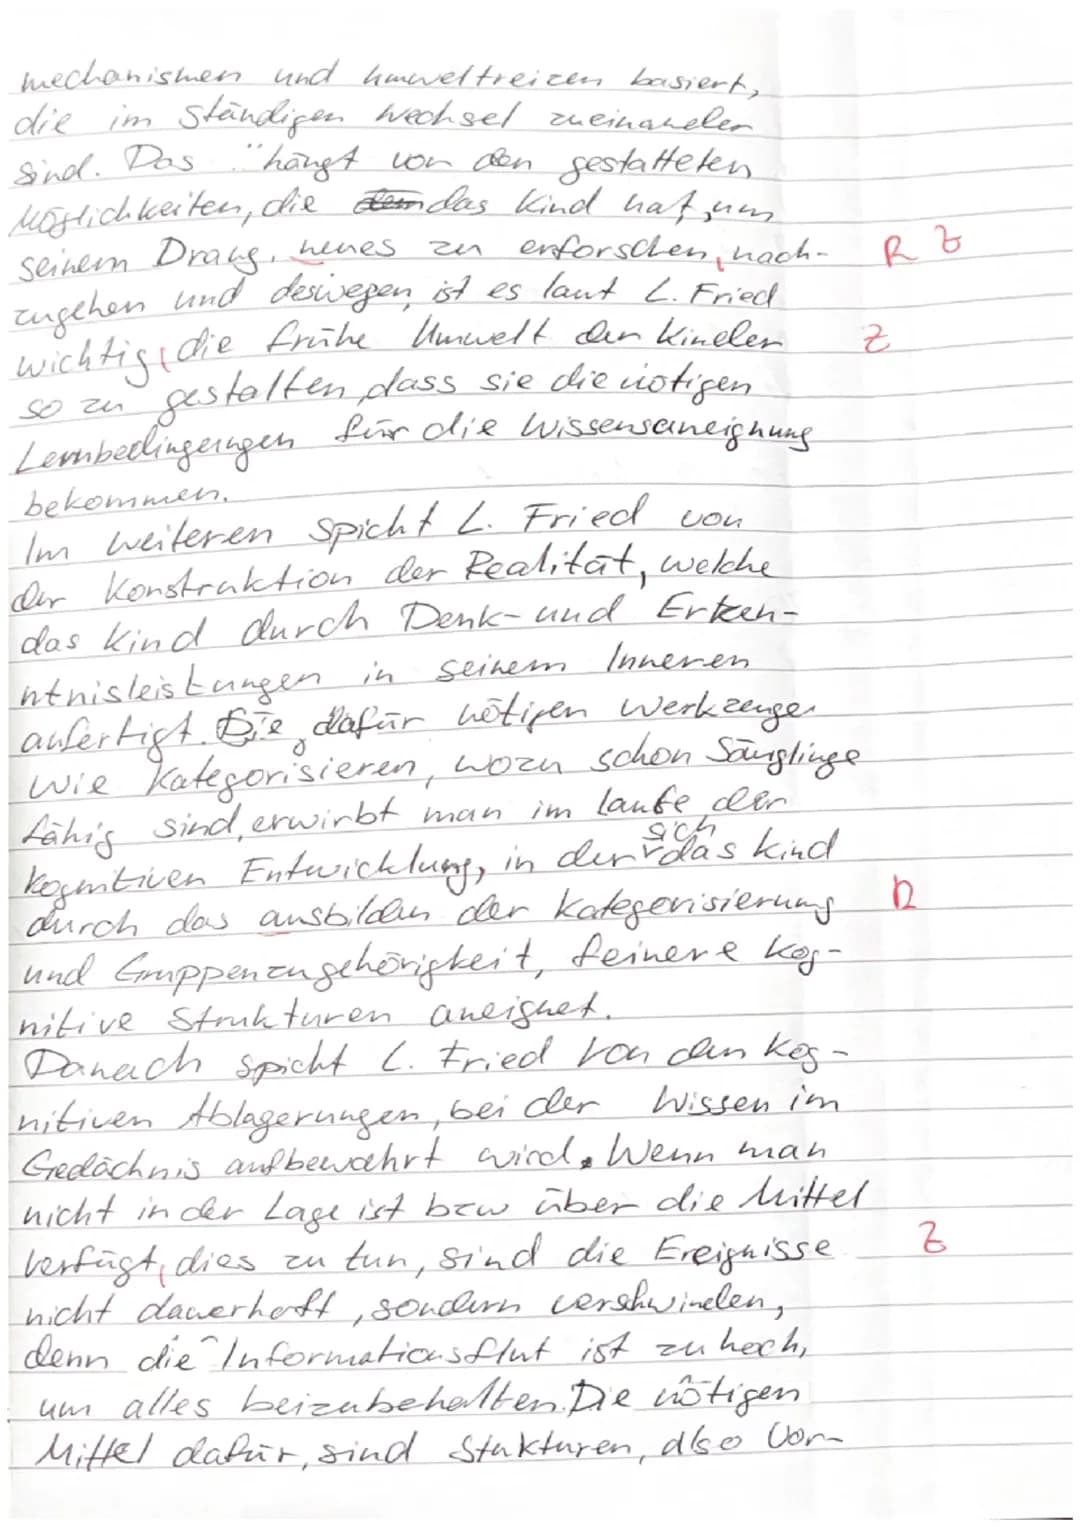 mechanismen und Umweltreizen basiert,
die im Ständigen Wechsel zueinander
sind. Das hängt von den gestatteten
Möglichkeiten, die dem das Kind hat, um
seinem Drang, neues zu erforschen, nach- R Z
zugehen und deswegen ist es laut L. Fried
wichtig, die frühe Umwelt der Kinder Z
so zu gestalten, dass sie die nötigen
Lernbedingungen für die Wissensaneignung
bekommen.
Im weiteren spicht L. Fried von
der Konstruktion der Realität, welche
das Kind durch Denk- und Erken-
ntnisleistungen in seinem Inneren
anfertigt. Die, dafür nötigen Werkzeuge
wie Kategorisieren, wozu schon Säuglinge
fähig sind, erwirbt man im laufe der
kognitiven Entwicklung, in der sich das Kind
durch das ausbilden der Kategorisierung R
und Gruppenzugehörigkeit, feinere Kog-
nitive Strukturen aneignet.
Danach spicht L. Fried von den Kog-
nitiven Ablagerungen, bei der Wissen im
Gedächnis aufbewahrt wird. Wenn man
nicht in der Lage ist bzw über die Mittel
verfügt, dies zu tun, sind die Ereignisse Z
nicht dauerhaft, sondern verschwinden,
denn die Informationsflut ist zu hoch,
um alles beizubehalten. Die nötigen
Mittel dafür, sind Stukturen, also Vor-